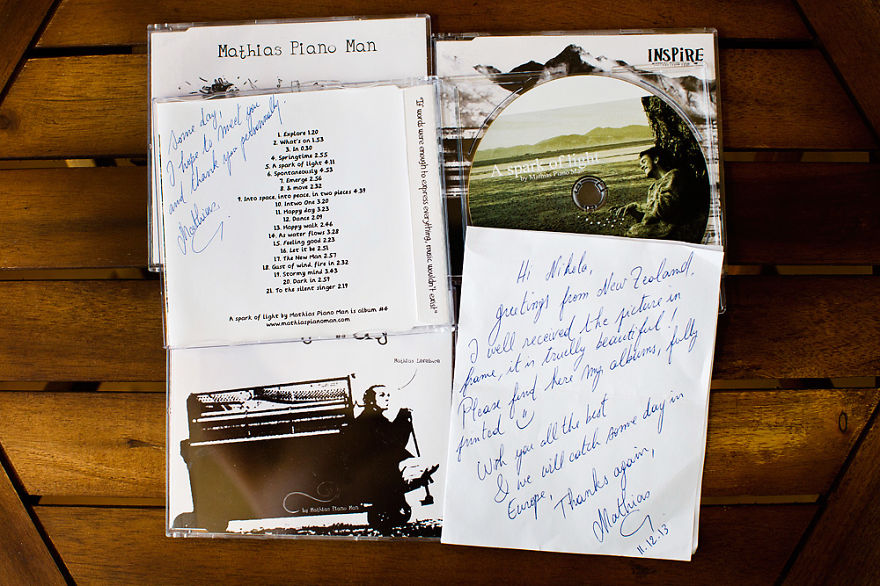 Mathias Piano Man
INSPIRE
Some day,
I hope to meet you
and thank you personally.
Mathias.
1. Explore 1.20
2. What's on 1.53
3. In 0.30
4. Springtime 2.55
5. A spark of light 4.11
6. Spontaneously 4.53
7. Emerge 2.56
8. & move 2.32
9. Into space, into peace, in two pieces 4.39
10. Intwo One 3.20
11. Happy day 3.23
12. Dance 2.09
13. Happy walk 2.46
14. As water flows 3.28
15. Feeling good 2.23
16. Let it be 2.51
17. The New Man 2.57
18. Gust of wind, fire in 2.32
19. Stormy mind 3.43
20. Dark in 2.59
21. To the silent singer 2.19
A spark of light by Mathias Piano Man is album #4
www.mathiaspianoman.com
"If words were enough to express everything, music wouldn't exist"
A spark of light
by Mathias Piano Man
Mathias Lefebvre
by Mathias Piano Man
Hi Nikola,
greetings from New Zealand.
I well received the picture in
frame, it is trully beautiful!
Please find here my albums, fully
printed
Wish you all the best
& we will catch some day in
Europe,
Thanks again,
Mathias
11.12.13